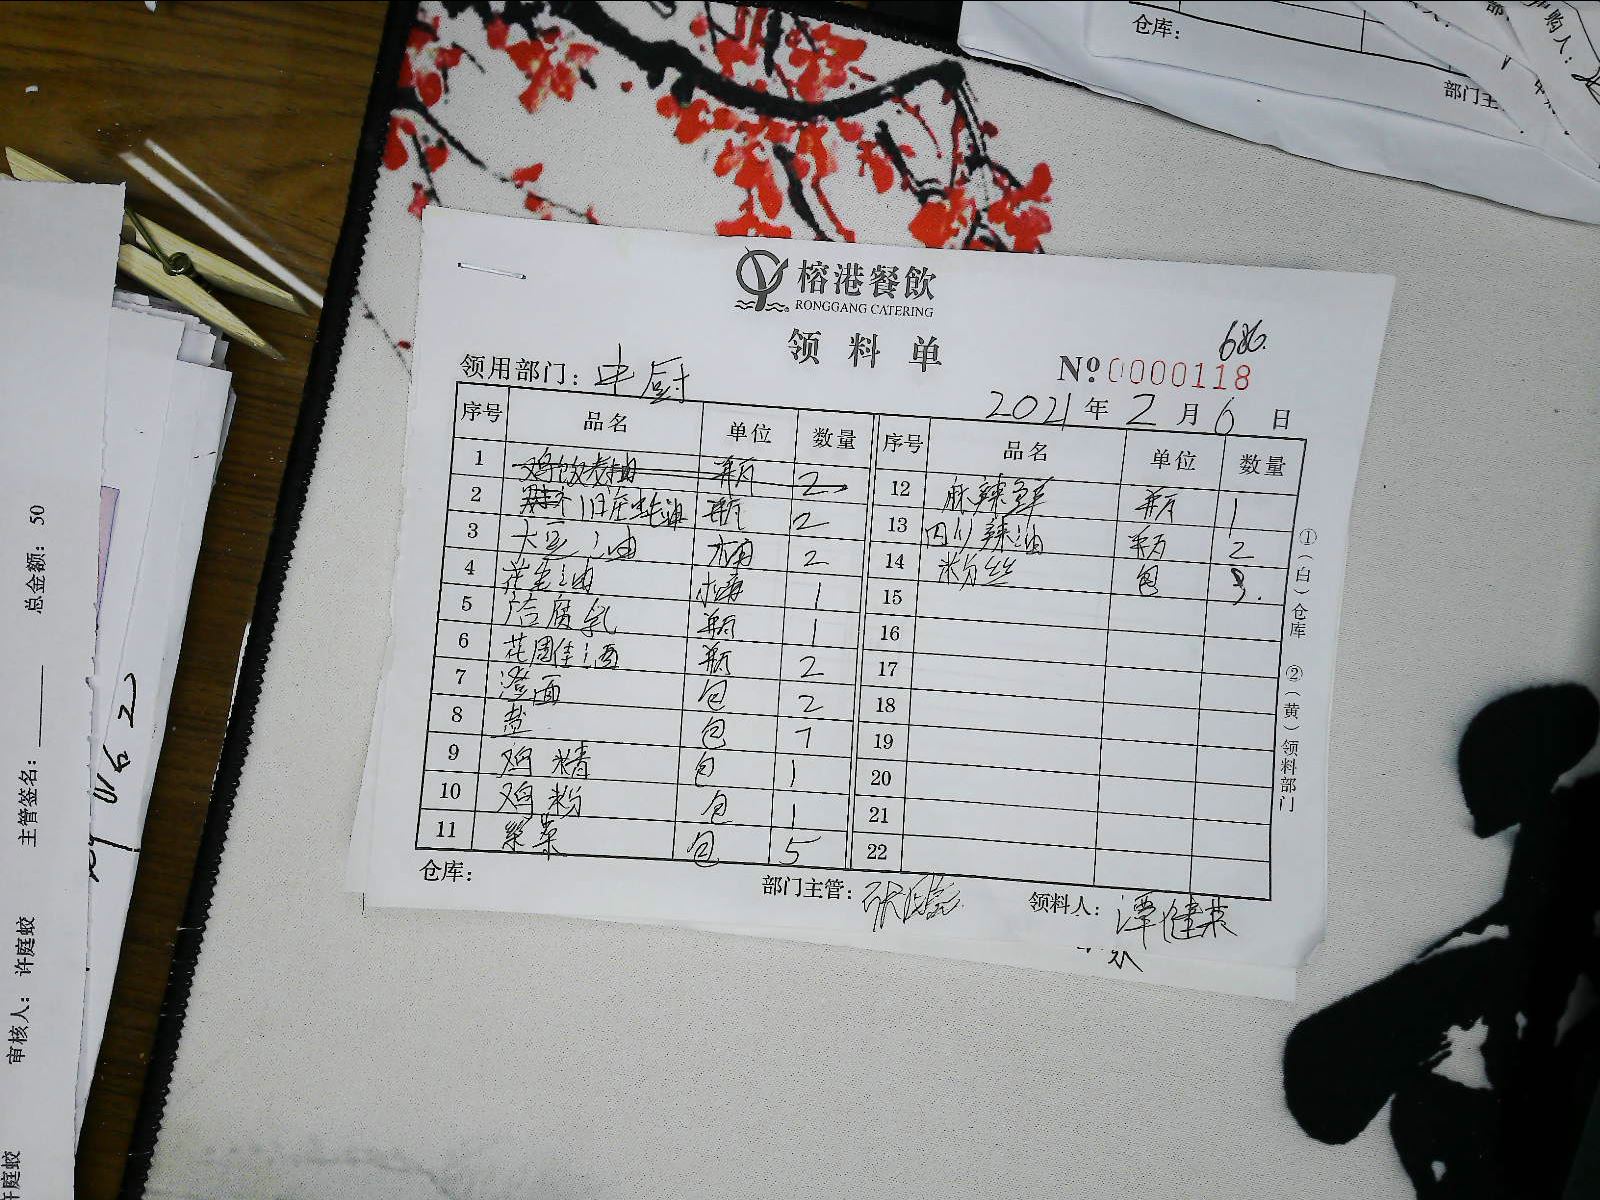 仓库：
部门主
购人：
榕港餐飲
RONGGANG CATERING
领料单
686.
№0000118
领用部门：中厨
2021年2月6日
序号 品名 单位 数量 序号 品名 单位 数量
1 鸡饭老抽 瓶 2 12 麻辣鲜 瓶 1
2 旧庄蚝油 瓶 2 13 四川辣油 瓶 2
3 大豆油 桶 2 14 粉丝 包 3.
4 花生油 桶 1 15
5 腐乳 瓶 1 16
6 花雕酒 瓶 2 17
7 澄面 包 2 18
8 盐 包 7 19
9 鸡精 包 1 20
10 鸡粉 包 1 21
11 紫菜 包 5 22
①（白）仓库 ②（黄）领料部门
仓库： 部门主管： 领料人：谭健
总金额：50
主管签名：
审核人：许庭蛟
许庭蛟